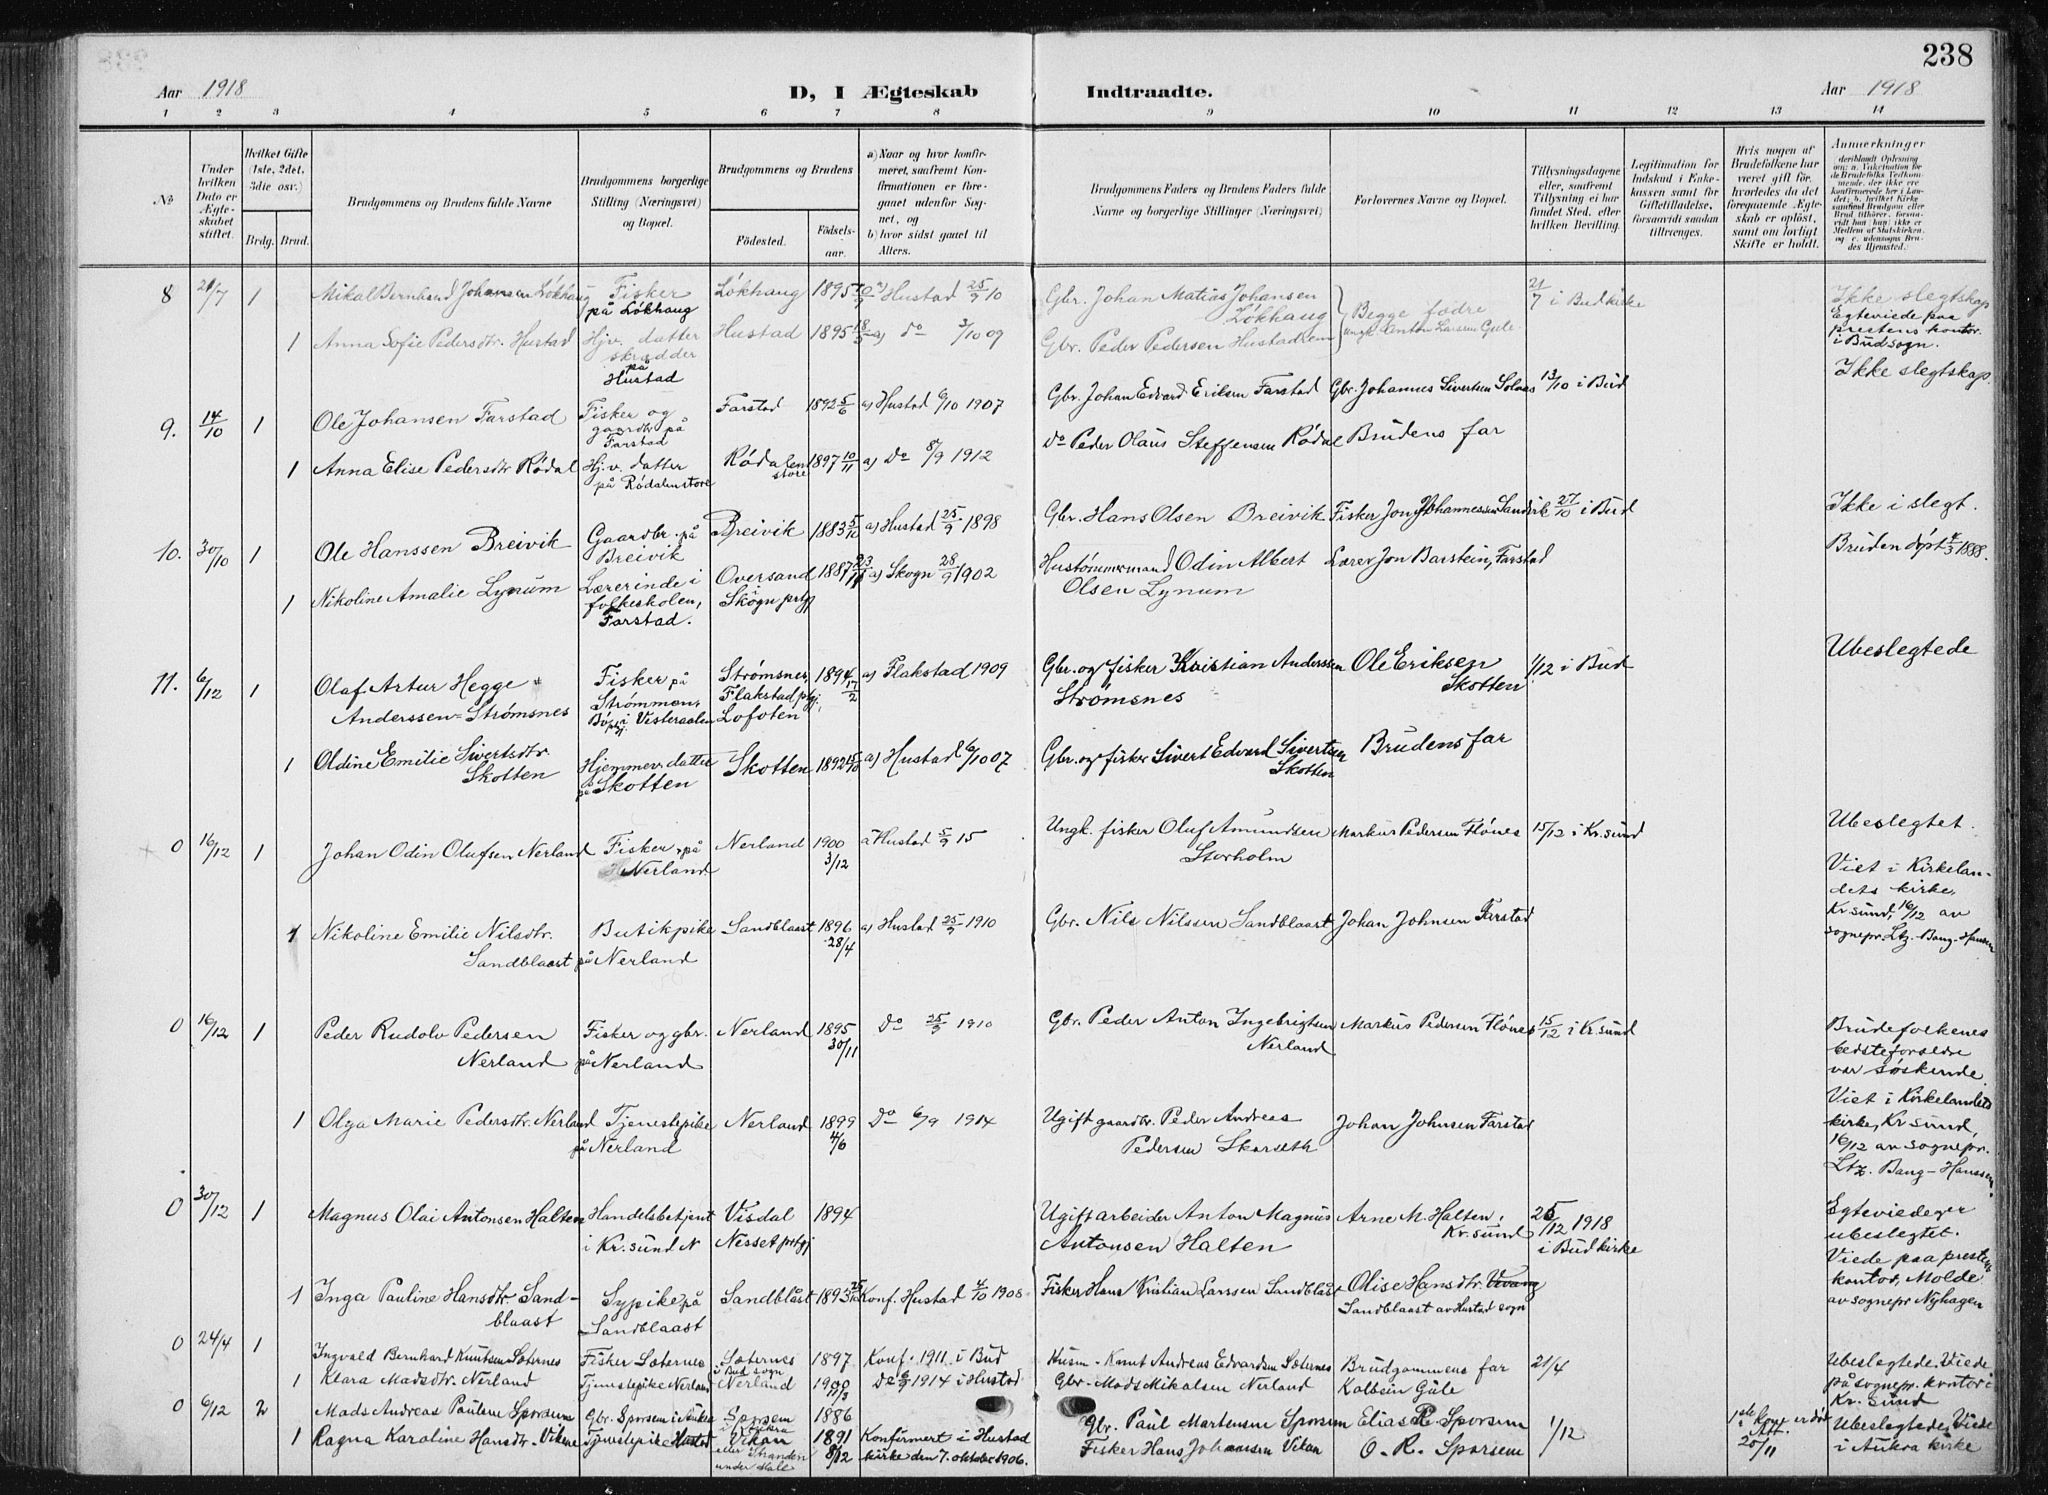 238
Aar 1918
D, I Ægteskab
Indtraadte.
Aar 1918
1 2 3 4 5 6 7 8 9 10 11 12 13 14
No
Under hvilken Dato er Ægteskabet stiftet.
Hvilket Gifte (1ste, 2det, 3die osv.)
Brdg. Brud.
Brudgommens og Brudens fulde Navne
Brudgommens borgerlige Stilling (Næringsvei) og Bopæl.
Brudgommens og Brudens
Fødested.
Fødselsaar.
a) Naar og hvor konfirmeret, saafremt Konfirmationen er foregaaet udenfor Sognet, og
b) hvor sidst gaaet til Alters.
Brudgommens Faders og Brudens Faders fulde Navne og borgerlige Stillinger (Næringsvei)
Forlovernes Navne og Bopæl.
Tillysningsdagene eller, saafremt Tillysning ei har fundet Sted, efter hvilken Bevilling.
Legitimation for Indskud i Enkekassen samt for Giftetilladelse, forsaavidt saadan tiltrænges.
Hvis nogen af Brudefolkene har været gift før, hvorledes da det foregaaende Ægteskab er opløst, samt om lovligt Skifte er holdt.
Anmerkninger
8 1 Mikal Bernhard Johansen Løkhaug Fisker på Løkhaug Løkhaug 1895 Hustad 25/9 10 Gbr. Johan Matias Johansen Løkhaug Begge fødre 21/7 i Bud kirke Ikke slegtskap Egteviede paa prestens kontor i Bud sogn.
1 Anna Sofie Pedersdtr. Hustad Hjv. datter skrædder på Hustad Hustad 1895 a) do 3/10 09 Gbr. Peder Pedersen Hustad
9. 14/10 1 Ole Johansen Farstad Fisker og gaardbr på Farstad Farstad 1892 5/6 a) Hustad 6/10 1907 Gbr. Johan Edvard Eriksen Farstad Gbr. Johannes Sivertsen 13/10 i Bud Ikke slegtskap.
1 Anna Elise Pedersdtr Rødal Hj.v. datter på Rødalen store Rødalen store 1897 10/11 a) Do 8/9 1912 do Peder Olaus Steffensen Rødal Brudens far
10. 30/10 1 Ole Hanssen Breivik Gaardbr. på Breivik Breivik 1883 5/10 a) Hustad 25/9 1898 Gbr. Hans Olsen Breivik Fisker Jon Johannessen 27/10 i Bud Ikke i slegt.
1 Nikoline Amalie Lynum Lærerinde i folkeskolen, Farstad. Oversand Skogn prtgj 1887 a) Skogn 28/9 1902 Hustømmermand Odin Albert Olsen Lynum Lærer Jon Barstein, Farstad Bruden døpt 4/3 1888.
11. 6/12 1 Olaf Artur Hegge Anderssen-Strømsnes Fisker på Strømmen, Bø i Vesteraalen Strømsnes, Flakstad prgj., Lofoten 1894 17/2 a) Flakstad 1909 Gbr. og fisker Kristian Anderssen Strømsnes Ole Eriksen Skotten 1/12 i Bud Ubeslegtede
1 Oldine Emilie Sivertsdtr. Skotten Hjemmev. datter på Skotten Skotten 1892 15/10 a) Hustad 6/10 07 Gbr. og fisker Sivert Edvard Sivertsen Skotten Brudens far
0 16/12 1 Johan Odin Olufsen Nerland Fisker på Nerland Nerland 1900 3/12 a Hustad 5/9 15 Ungk. fisker Oluf Amundsen Storholm Markus Pedersen Flønes 15/12 i Kr.sund Ubeslegtet.
Viet i Kirkelandets kirke, Kr.sund, 16/12 av sognepr. Ltz. Bang-Hansen
1 Nikoline Emilie Nilsdtr. Sandblaast Butikpike på Nerland Sandblaast 1896 28/4 a) Hustad 25/9 1910 Gbr. Nils Nilssen Sandblaast Johan Johnsen Farstad
0 16/12 1 Peder Rudolv Pedersen Nerland Fisker og gbr. på Nerland Nerland 1895 30/11 Do 25/9 1910 Gbr. Peder Anton Ingebrigtsen Nerland Markus Pedersen Flønes 15/12 i Kr.sund Brudefolkenes bedsteforeldre var søskende.
1 Olga Marie Pedersdtr. Nerland Tjenestepike på Nerland Nerland 1899 4/6 Do 6/9 1914 Ugift gaardbr. Peder Andreas Pedersen Skarseth Johan Johnsen Farstad Viet i Kirkelandets kirke, Kr sund, 16/12 av sognepr. Ltz. Bang-Hanssen.
0 30/12 1 Magnus Olai Antonsen Halten Handelsbetjent i Kr.sund N Visdal Nesset prtgj 1894 Ugift arbeider Anton Magnus Antonsen Halten Arne M. Halten, Kr.sund 26/12 1918 i Bud kirke Egteviede er ubeslegtet.
Viede paa prestens kontor, Molde av sognepr Nyhagen
1 Inga Pauline Hansdtr Sandblaast Sypike på Sandblaast Sandblåst 1893 Konf. Hustad 4/10 1908 Fisker Hans Kristian Larssen Sandblåst Olise Hansdtr. Sandblaast av Hustad sogn
0 24/4 1 Ingvald Bernhard Knutsen Sæternes Fisker Sæternes Sæternes i Bud sogn 1897 Konf. 1911 i Bud Husm. Knut Andreas Edvardsen Sæternes Brudgommens far 21/4 Ubeslegtede. Viede på sognepr. kontor i Kr. sund
1 Klara Madsdtr. Nerland Tjenestepike Nerland Nerland 1900 Do 1914 i Hustad Gbr. Mads Mikalsen Nerland Kolbein Gule
0 6/12 2 Mads Andreas Paulsen Sporsem Gbr. Sporsem i Aukra Sporsem i Aukra 1886 Gbr. Paul Martensen Sporsem Elias R. Sporsem 1/12 Ubeslegtede. Viede i Aukra kirke
1 Ragna Karoline Hansdtr. Vikan Tjenestepike Hustad Vikan 1891 8/12 Konfirmert i Hustad kirke den 7. oktober 1906. Fisker Hans Johansen Vikan O. R. Sporsem